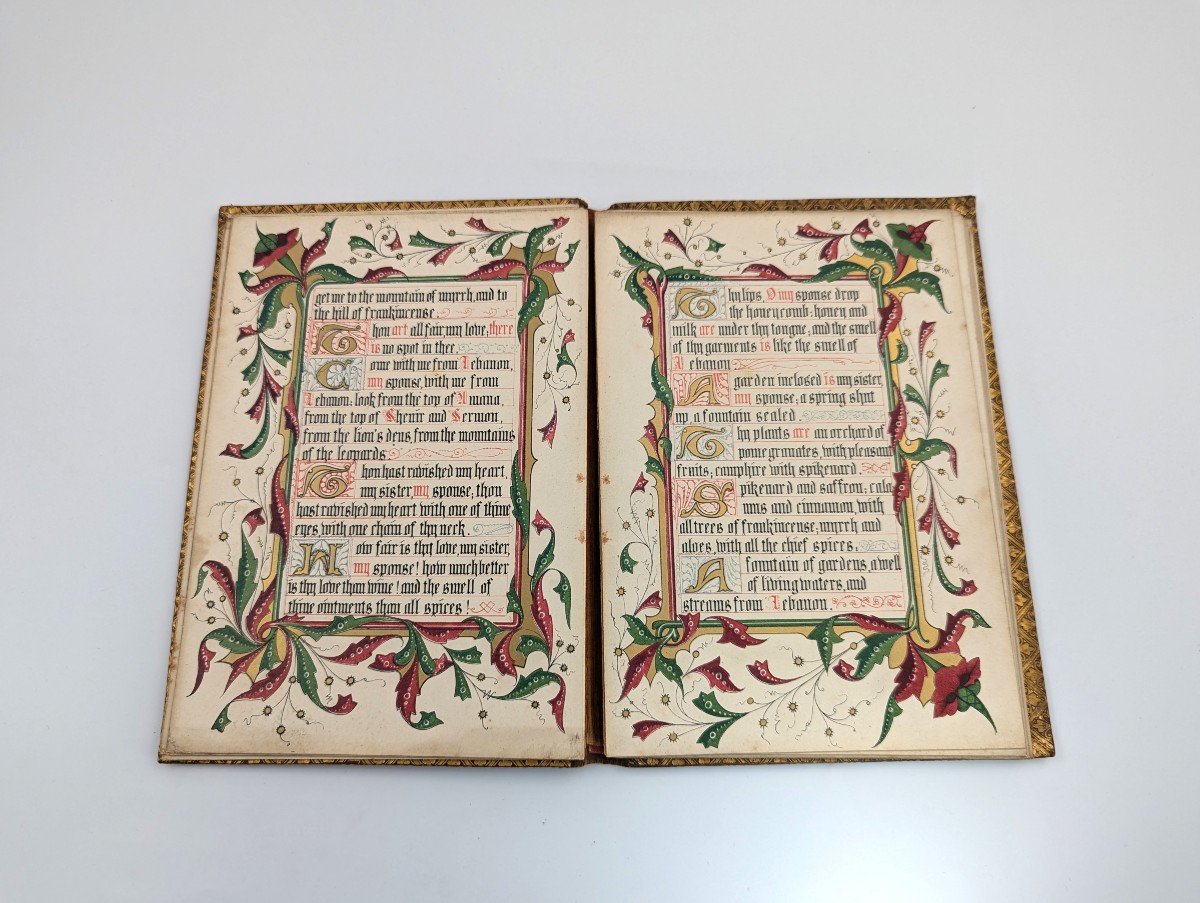 get me to the mountain of myrrh, and to
the hill of frankincense.
Thou art all fair, my love; there
is no spot in thee.
Come with me from Lebanon,
my spouse, with me from
Lebanon: look from the top of Amana,
from the top of Shenir and Hermon,
from the lion's dens, from the mountains
of the leopards.
Thou hast ravished my heart,
my sister, my spouse; thou
hast ravished my heart with one of thine
eyes, with one chain of thy neck.
How fair is thy love, my sister,
my spouse! how much better
is thy love than wine! and the smell of
thine ointments than all spices!
Thy lips, O my spouse drop
the honeycomb: honey and
milk are under thy tongue; and the smell
of thy garments is like the smell of
Lebanon
A garden inclosed is my sister,
my spouse; a spring shut
up a fountain sealed.
Thy plants are an orchard of
pomegranates, with pleasant
fruits; camphire with spikenard.
Spikenard and saffron; cala-
mus and cinnamon, with
all trees of frankincense; myrrh and
aloes, with all the chief spices.
A fountain of gardens, a well
of living waters, and
streams from Lebanon